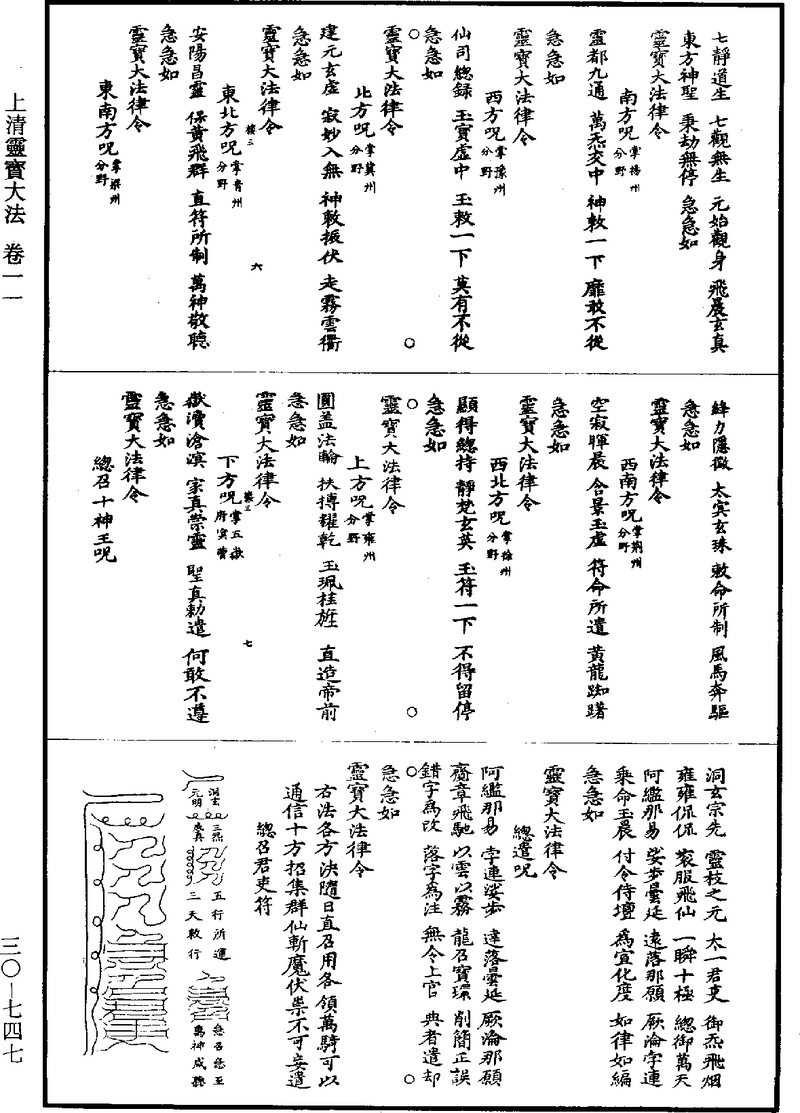 上清靈寶大法 卷一一
三〇—七四七
七靜道生 七觀無生 元始觀身 飛晨玄真
東方神聖 秉劫無停 急急如
靈寶大法律令
南方呪 掌揚州分野
靈都九通 萬炁交中 神敕一下 靡敢不從
急急如
靈寶大法律令
西方呪 掌豫州分野
仙司總錄 玉寶虛中 玉敕一下 莫有不從
急急如
靈寶大法律令
北方呪 掌冀州分野
建元玄虛 寂妙入無 神敕振伏 走霧雲衢
急急如
靈寶大法律令
東北方呪 掌青州分野
六
安陽昌靈 保黃飛群 直符所制 萬神敬聽
急急如
靈寶大法律令
東南方呪 掌梁州分野
絳力隱微 太冥玄珠 敕命所制 風馬奔驅
急急如
靈寶大法律令
西南方呪 掌荆州分野
空寂暉晨 含景玉虛 符命所遣 黃龍踟躇
急急如
靈寶大法律令
西北方呪 掌徐州分野
顯得總持 靜梵玄英 玉符一下 不得留停
急急如
靈寶大法律令
上方呪 掌雍州分野
圓盖法輪 扶搏耀乾 玉珮桂旌 直造帝前
急急如
靈寶大法律令
下方呪 掌五嶽府冥曹
七
嶽瀆滄溟 家真崇靈 聖真勅遣 何敢不遵
急急如
靈寶大法律令
總召十神王呪
洞玄宗先 靈枝之元 太一君吏 御炁飛烟
雍雍侃侃 袞服飛仙 一瞬十極 總御萬天
阿繿那易 娑步曇延 遠落那願 厥淪字連
乘命玉晨 付令侍壇 為宣化度 如律如編
急急如
靈寶大法律令
總遣呪
阿繿那易 孛連娑步 達落曇延 厥淪那願
齋章飛馳 以雲以霧 龍召寶環 削簡正誤
錯字為改 落字為注 無令上官 典者遣却
急急如
靈寶大法律令
右法各方決隨日直召用各領萬騎可以
通信十方招集群仙斬魔伏祟不可妄遣
總召君吏符
洞玄元明
三炁
五行所運
三天敕行
急召急至
萬神咸聽